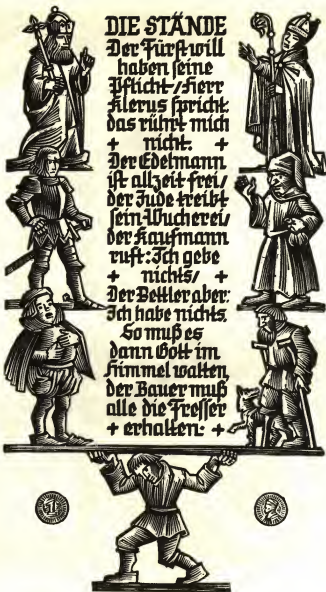 DIE STÄNDE
Der Fürst will
haben seine
Pflicht / Herr
Klerus spricht:
das rührt mich
+ nicht. +
Der Edelmann
ist allzeit frei /
der Jude treibt
sein Wucherei /
der Kaufmann
ruft: Ich gebe
+ nichts / +
Der Bettler aber:
Ich habe nichts.
So muß es
dann Gott im
Himmel walten
der Bauer muß
alle die Fresser
+ erhalten: +